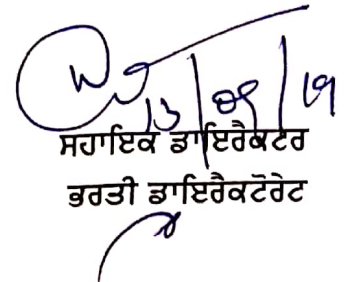 13/09/19
ਸਹਾਇਕ ਡਾਇਰੈਕਟਰ
ਭਰਤੀ ਡਾਇਰੈਕਟੋਰੇਟ